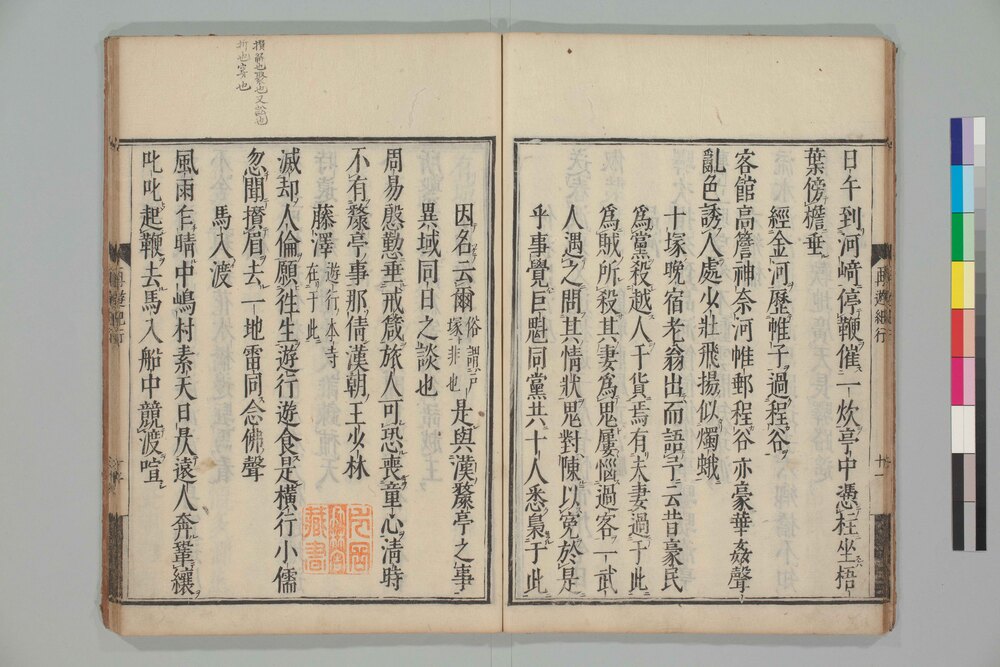 日午到河﨑停鞭催一炊亭中憑柱坐梧
葉傍檐垂
經金河歷帷子過程谷
客館高簷神奈河帷郵程谷亦豪華姦聲
亂色誘入處少壯飛揚似燭蛾
十塚晚宿老翁出而語予云昔豪民
爲黨殺越人于貨焉有夫妻過于此
爲賊所殺其妻爲鬼屢惱過客一武
人遇之問其情狀鬼對陳以寃於是
乎事覺巨魁同黨共十人悉梟于此
再遊紀行
十一
因名云爾俗謂戶塚非也是與漢鰲亭之事
異域同日之談也
周易慇懃垂戒箴旅人可恐喪童心淸時
不有鰲亭事那倩漢朝王少林
藤澤遊行本寺在于此
滅却人倫願徃生遊行遊食是橫行小儒
忽聞攅眉去一地雷同念佛聲
馬入渡
風雨乍晴中嶋村素天日仄遠人奔鞏縷
叱叱起鞭去馬入船中競渡喧
再遊紀行
藏書